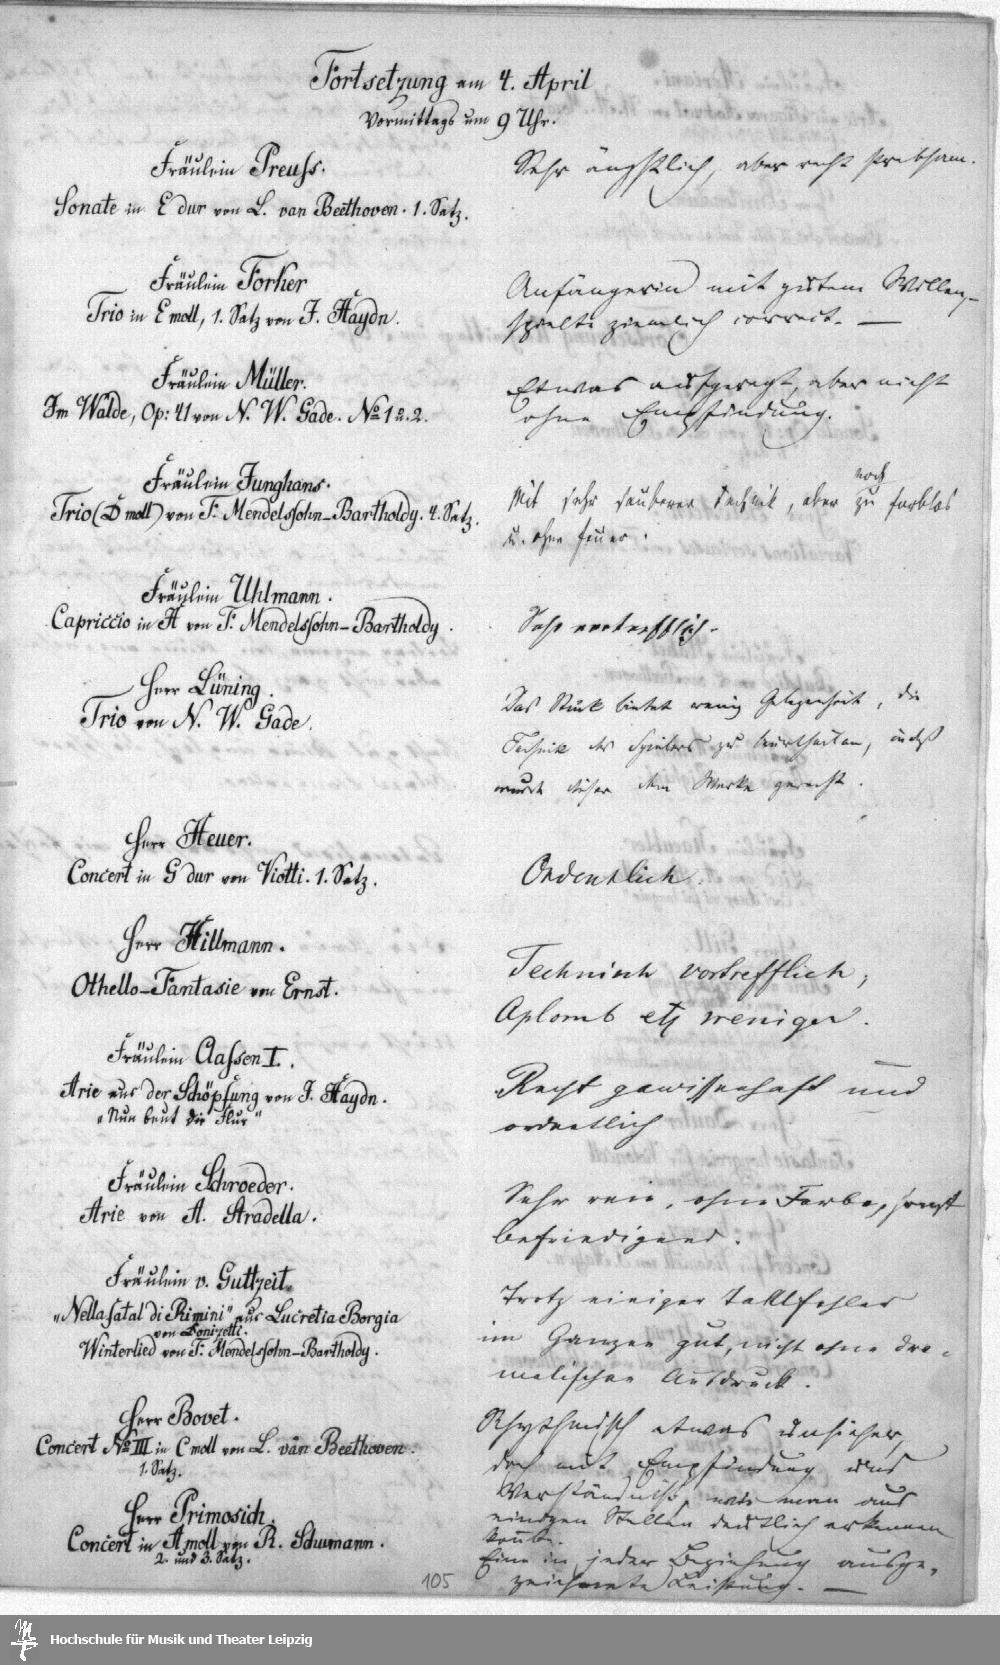 Fortsetzung am 4. April
Vormittags um 9 Uhr.
Fräulein Preuss.
Sonate in E dur von L. van Beethoven. 1. Satz.
Sehr ängstlich, aber recht strebsam.
Fräulein Forker
Trio in E moll, 1. Satz von J. Haydn.
Anfängerin mit gutem Willen,
spielte ziemlich correct. —
Fräulein Müller.
Im Walde, Op: 41 von N. W. Gade. No 1 u. 2.
Etwas aufgeregt, aber nicht
ohne Empfindung.
Fräulein Junghans.
Trio (D moll) von F. Mendelssohn-Bartholdy. 4. Satz.
Mit sehr sauberer Technik, aber noch zu farblos
u. ohne Feuer.
Fräulein Uhlmann.
Capriccio in A von F. Mendelssohn-Bartholdy.
Sehr vortrefflich.
Herr Lüning.
Trio von N. W. Gade.
Das Stück bietet wenig Gelegenheit, die
Technik des Spielers zu beurtheilen, indeß
wurde dieser dem Werke gerecht.
Herr Heuer.
Concert in G dur von Viotti. 1. Satz.
Ordentlich.
Herr Hillmann.
Othello-Fantasie von Ernst.
Technisch vortrefflich,
Aplomb etc weniger.
Fräulein Aassen I.
Arie aus der Schöpfung von J. Haydn.
"Nun beut die Flur"
Recht gewissenhaft und
ordentlich
Fräulein Schroeder.
Arie von A. Stradella.
Sehr rein, ohne Farbe, sonst
befriedigend.
Fräulein v. Guttzeit.
"Nella fatal di Rimini" aus Lucretia Borgia
von Donizetti.
Winterlied von F. Mendelssohn-Bartholdy.
Trotz einiger Taktfehler
im Ganzen gut, nicht ohne dra-
matischen Ausdruck.
Herr Bovet.
Concert No III in C moll von L. van Beethoven.
1. Satz.
Rhythmisch etwas unsicher,
doch mit Empfindung und
Verständniß, wie man aus
einigen Stellen deutlich erkennen
konnte.
Herr Primosich.
Concert in A moll von R. Schumann.
2. und 3. Satz.
Eine in jeder Beziehung ausge-
zeichnete Leistung. —
105
Hochschule für Musik und Theater Leipzig